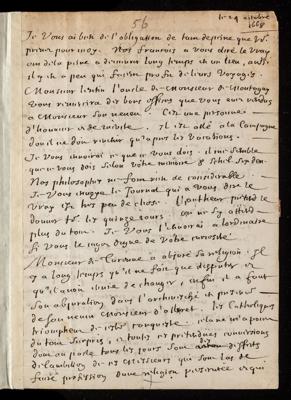 56
le 24 octobre
1668
Je vous ai bien de l'obligation de tant de prise que vous
prenez pour moy. Nos francois a vous dire le vray
ont de la peine a demeurer long temps en un lieu, aussi
il y en a peu qui fassent profit de leurs voyages.
Monsieur l'oncle de Monsieur de Montigny
vous remercie des bons offices que vous avez rendus
a Monsieur son neveu. C'est une personne
d'honneur et de mérite. Il est allé a la campagne
d'où il ne doit revenir qu'apres les vacations.
Je vous envoirai ce que je vous dois. il me semble
que je vous dois selon votre mémoire
Nos philosophes ne font rien de considerable.
Je vous envoye le Journal qui a vous dire le
vray est peu de chose. L'autheur pretend le
donner tous les quinze jours. on ne s'y attend
plus du tout. Je vous l'envoirai a l'ordinaire
si vous le jugez digne de votre curiosité
Monsieur de Turenne a abjuré sa religion. Il
y a long temps qu'il ne fait que disputer et
qu'il avoit envie de changer, enfin il a fait
son abjuration dans l'archevêché en presence
de son neveu Monsieur d'Albret. les Catholiques
triomphent de cette conqueste. cela ne m'a point
du tout surpris, et toutes ces pretendues conversions
dont on parle tous les jours sont des effects
de l'ambition de ces Messieurs qui sont las de
faire profession d'une religion persecutée et qui